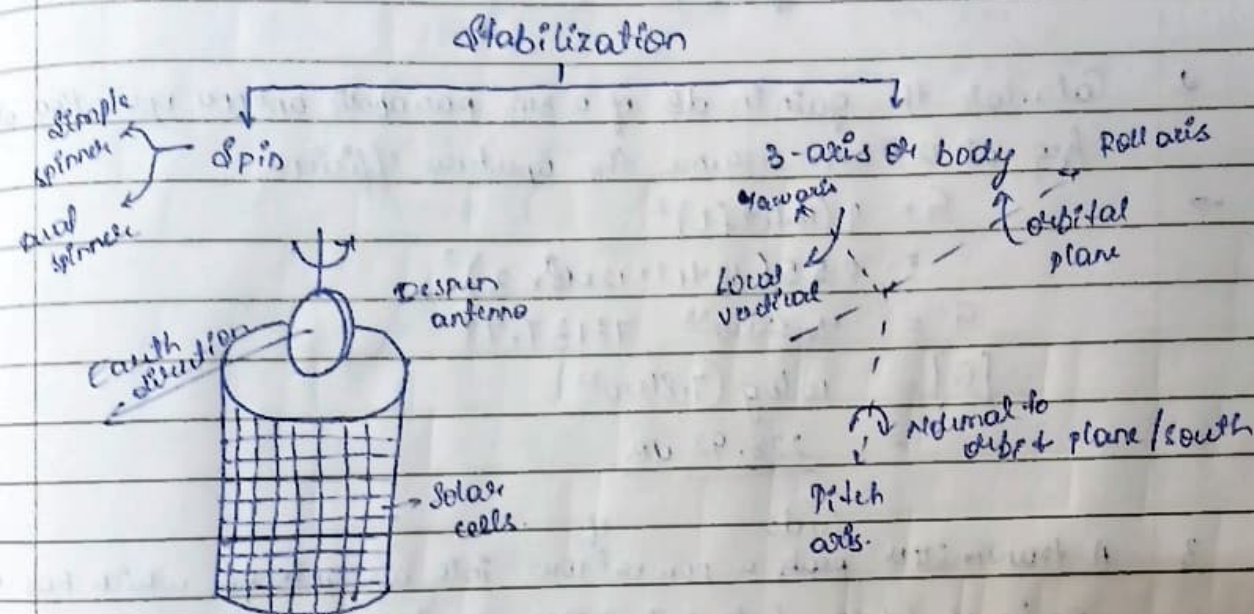 Stabilization
Simple
spinner
Spin
Dual
spinner
3-axis or body
Roll axis
Yaw axis
orbital
plane
Local
vertical
Despun
antenna
Earth
direction
Normal to
orbit plane/south
Solar
cells.
Pitch
axis.